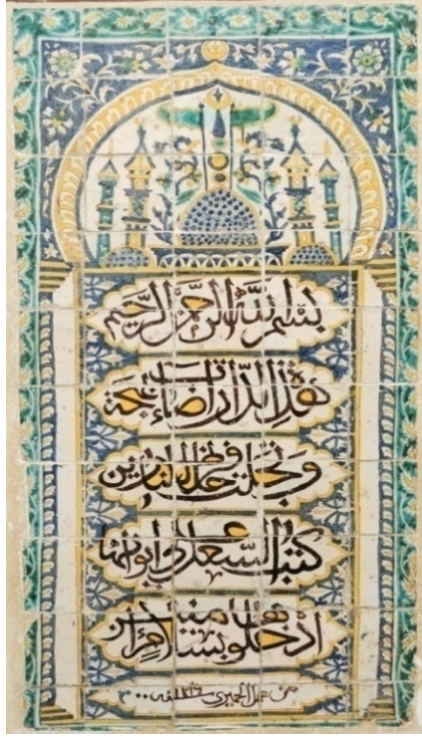 بسم الله الرحمن الرحيم
هذه الدار اضاءت بهجة
وتجلت فرحا للناظرين
كتب السعد على ابوابها
ادخلوها بسلام امنين
من عمل